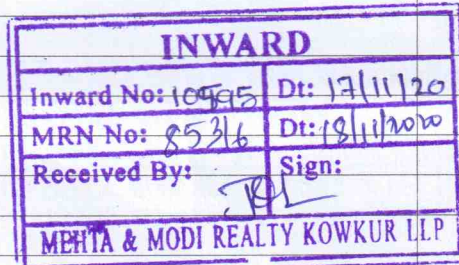 INWARD
Inward No: 10595 Dt: 17/11/20
MRN No: 85316 Dt: 18/11/2020
Received By: Sign:
MEHTA & MODI REALTY KOWKUR LLP